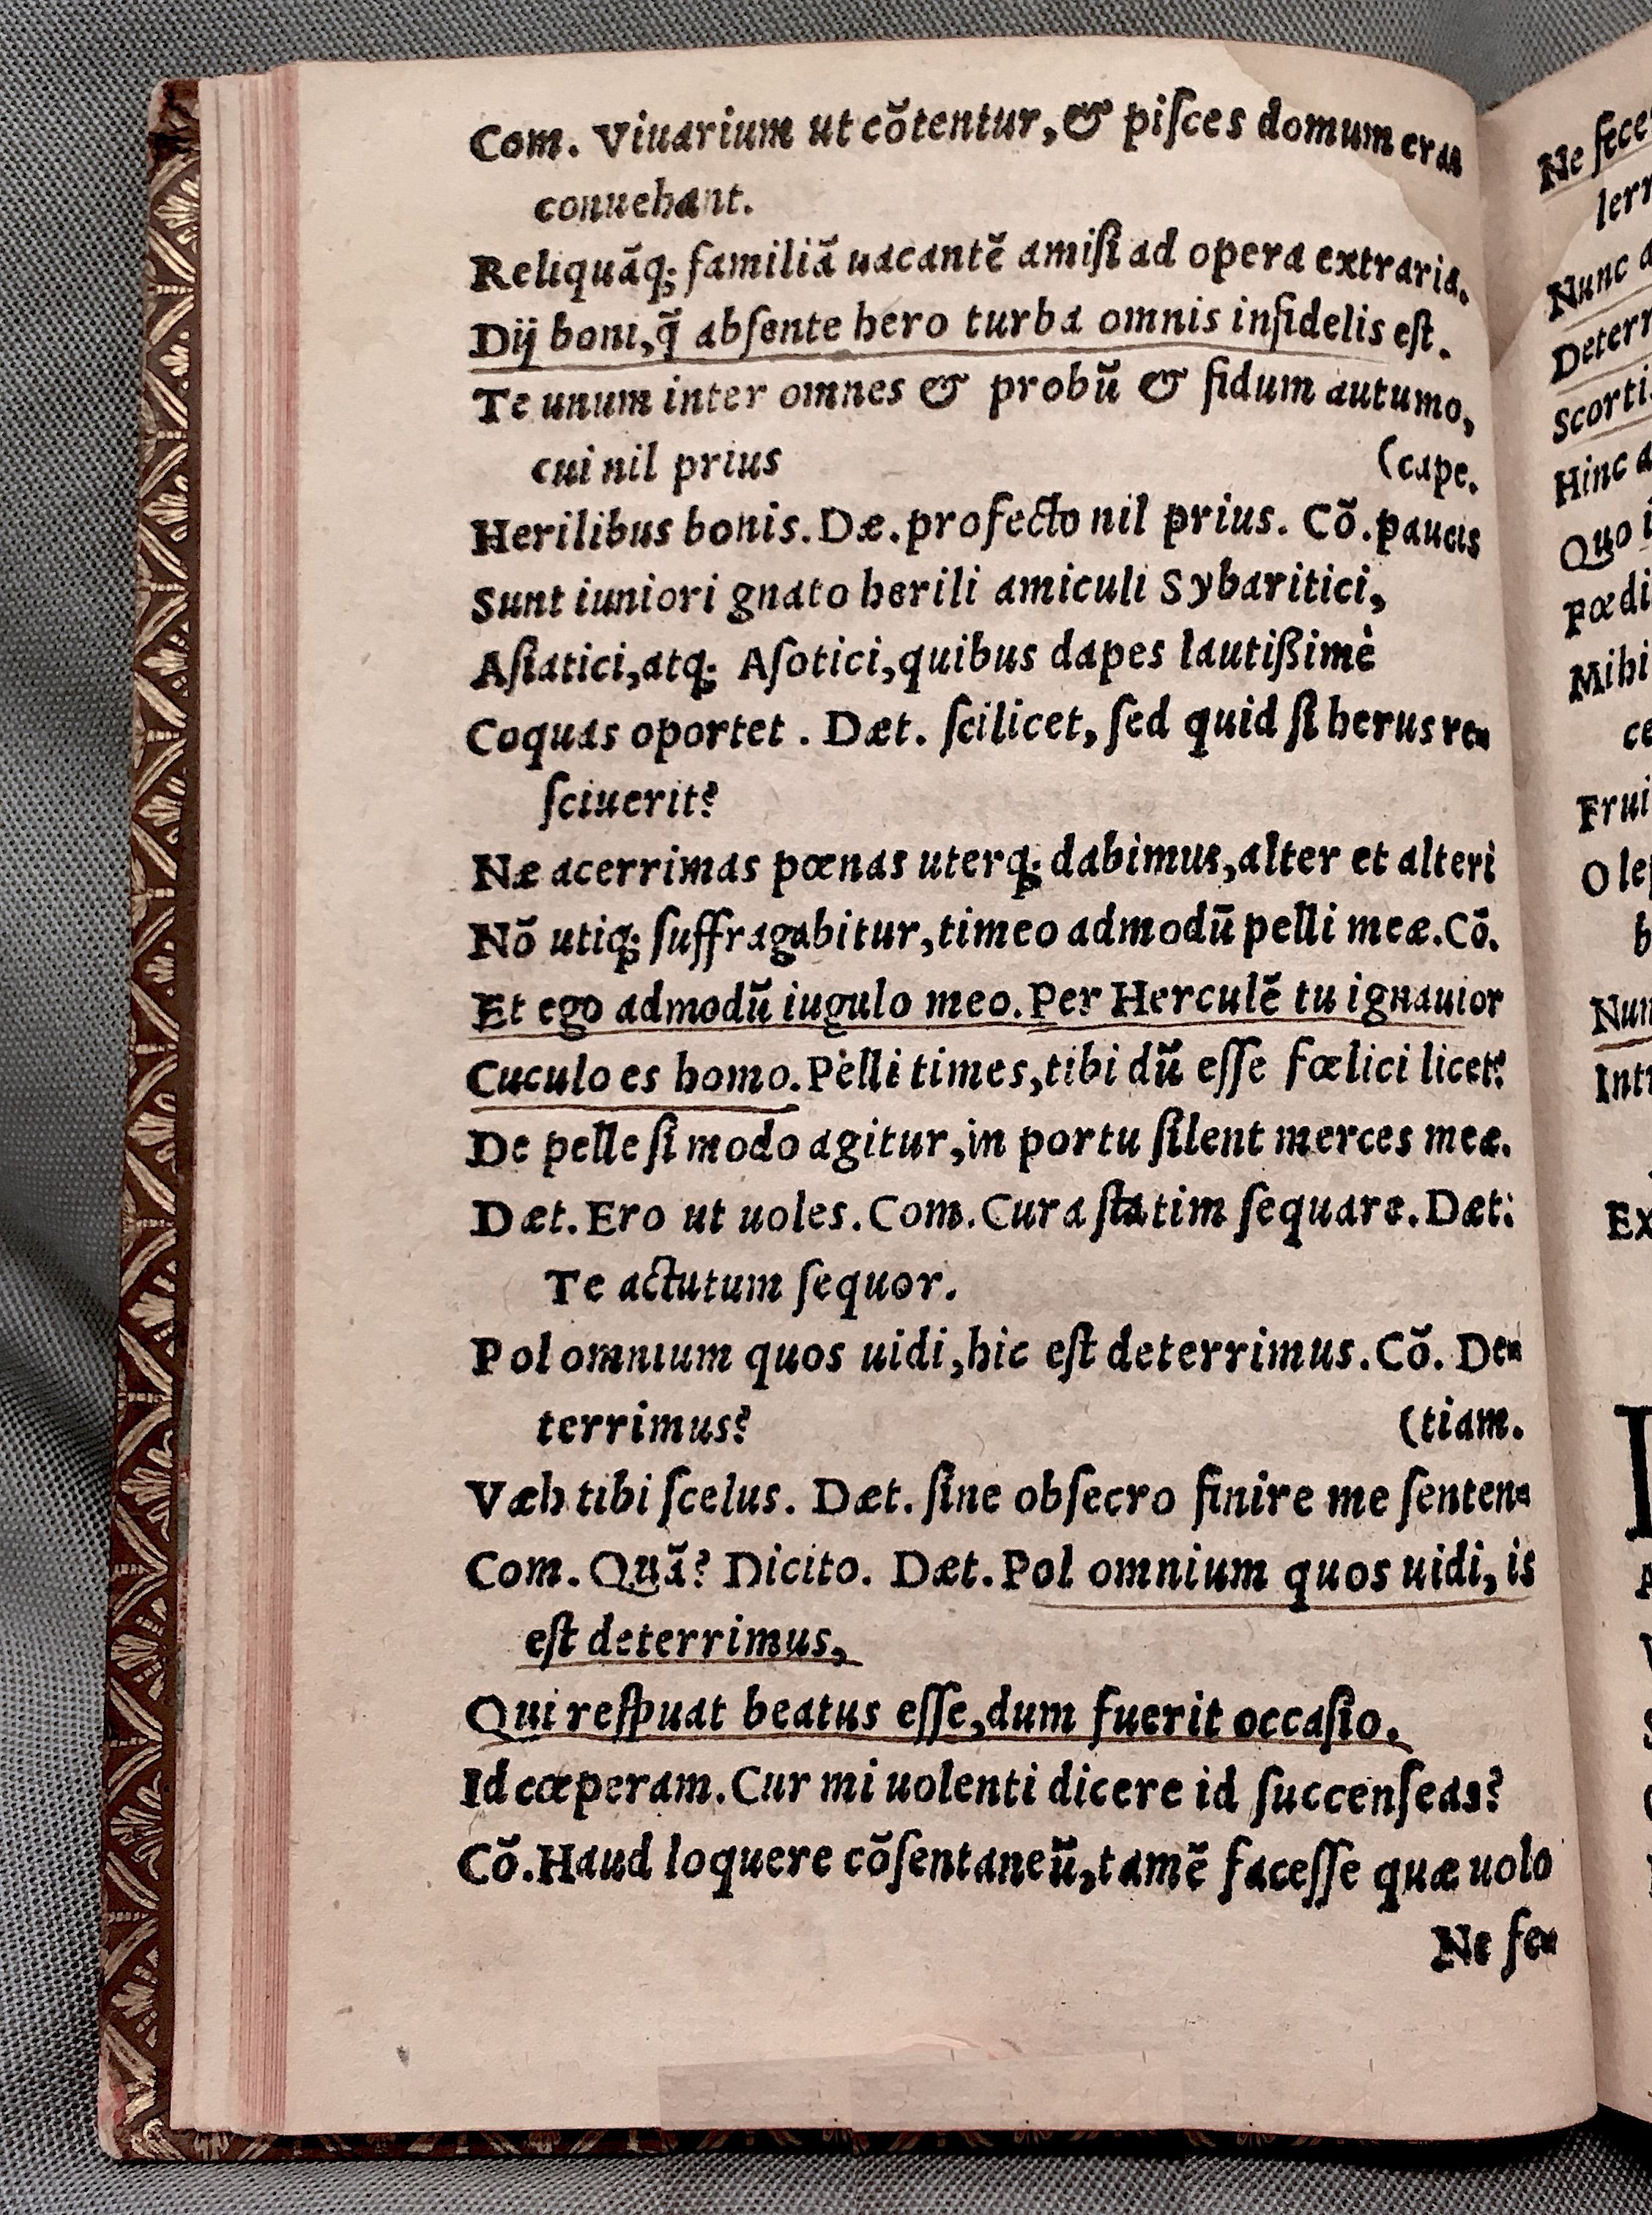 Com. Viuarium ut cõtentur, & piſces domum eras
conuehant.
Reliquãq; familiã uacantẽ amiſi ad opera extraria.
Dij boni, q̃ abſente hero turba omnis infidelis eſt.
Te unum inter omnes & probũ & fidum autumo,
cui nil prius (cape.
Herilibus bonis. Dæ. profecto nil prius. Cõ. paucis
Sunt iuniori gnato herili amiculi Sybaritici,
Aſiatici, atq; Aſotici, quibus dapes lautißimè
Coquas oportet. Dæt. ſcilicet, ſed quid ſi herus re-
ſciuerit?
Næ acerrimas pœnas uterq; dabimus, alter et alteri
Nõ utiq; ſuffragabitur, timeo admodũ pelli meæ. Cõ.
Et ego admodũ iugulo meo. Per Herculẽ tu ignauior
Cuculo es homo. Pelli times, tibi dũ eſſe fœlici licet?
De pelle ſi modo agitur, in portu ſilent merces meæ.
Dæt. Ero ut uoles. Com. Cura ſtatim ſequare. Dæt:
Te actutum ſequor.
Pol omnium quos uidi, hic eſt deterrimus. Cõ. De-
terrimus? (tiam.
Væh tibi ſcelus. Dæt. ſine obſecro finire me ſenten-
Com. Quã? Dicito. Dæt. Pol omnium quos uidi, is
eſt deterrimus,
Qui reſpuat beatus eſſe, dum fuerit occaſio.
Id cœperam. Cur mi uolenti dicere id ſuccenſeas?
Cõ. Haud loquere cõſentaneũ, tamẽ faceſſe quæ uolo
Ne fe-
Ne
Nunc
Hinc
Quo
Mihi